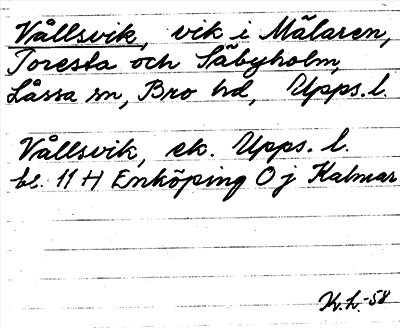 Vållsvik, vik i Mälaren,
Toresta och Säbyholm,
Låssa sn, Bro hd, Upps.l.
Vållsvik, ek. Upps. l.
bl. 11 H Enköping O j Kalmar
K.L.-58